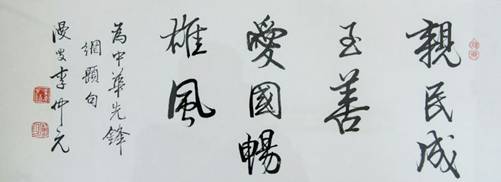 親民成
至善
愛國暢
雄風
為中華先鋒
網題句
漫叟李仲元